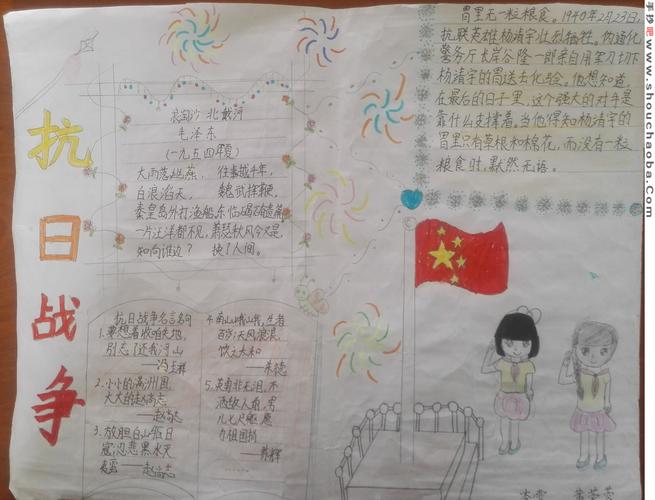 抗
日
战
争
浪淘沙 北戴河
毛泽东
(一九五四年夏)
大雨落幽燕, 往事越千年,
白浪滔天, 魏武挥鞭,
秦皇岛外打渔船,东临碣石有遗篇
一片汪洋都不见,萧瑟秋风今又是,
如向谁边? 换了人间。
胃里无一粒粮食。1940年2月23日,
抗联英雄杨靖宇壮烈牺牲。伪通化
警务厅长岸谷隆一郎亲自用军刀切下
杨靖宇的胃送去化验。他想知道
在最后的日子里,这个强大的对手是
靠什么支撑着。当他得知杨靖宇的
胃里只有草根和棉花,而没有一粒
粮食时,默然无语。
抗日战争名言名句
1.要想着收咱失地,
别忘了还我河山
——冯玉祥
2.小小的满洲国,
大大的赵尚志
——赵尚志
3.放胆白山
寇,忍悲黑水
——赵尚志
4.南山峨峨,生者
百岁,天风浪浪,
饮之太和
——朱德
5.英雄非无泪,不
洒敌人前,男
儿七尺躯,愿
为祖国捐
——陈辉
……
手抄吧 www.shouchaoba.com